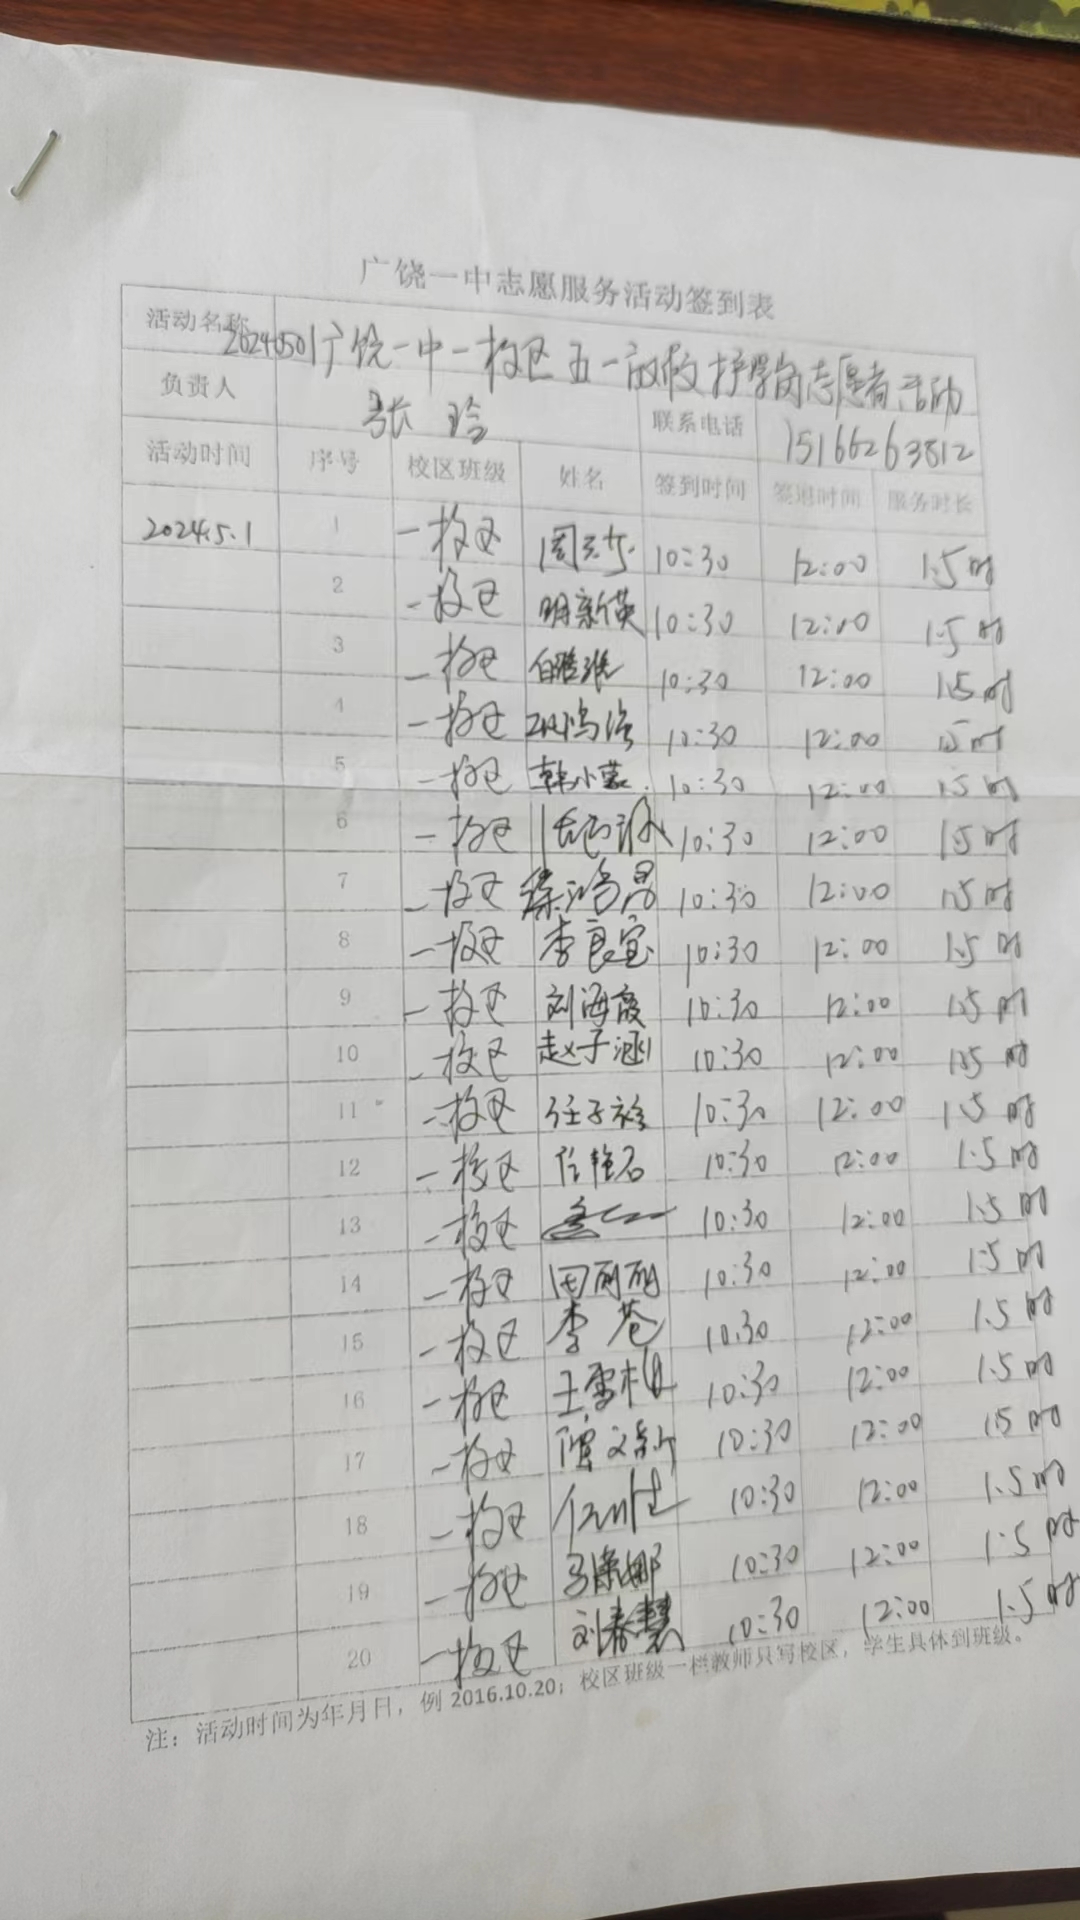 广饶一中志愿服务活动签到表
活动名称 20240501广饶一中一校区五一放校护学岗志愿者活动
负责人 张玲 联系电话 15166263812
活动时间 序号 校区班级 姓名 签到时间 签退时间 服务时长
2024.5.1 1 一校区 10:30 12:00 1.5时
2 一校区 明新英 10:30 12:00 1.5时
3 一校区 10:30 12:00 1.5时
4 一校区 10:30 12:00 1.5时
5 一校区 韩小蒙 10:30 12:00 1.5时
6 一校区 10:30 12:00 1.5时
7 一校区 10:30 12:00 1.5时
8 一校区 李良宝 10:30 12:00 1.5时
9 一校区 刘海霞 10:30 12:00 1.5时
10 一校区 赵子涵 10:30 12:00 1.5时
11 一校区 10:30 12:00 1.5时
12 一校区 10:30 12:00 1.5时
13 一校区 10:30 12:00 1.5时
14 一校区 田丽丽 10:30 12:00 1.5时
15 一校区 李苍 10:30 12:00 1.5时
16 一校区 10:30 12:00 1.5时
17 一校区 10:30 12:00 1.5时
18 一校区 10:30 12:00 1.5时
19 一校区 10:30 12:00 1.5时
20 一校区 刘春慧 10:30 12:00 1.5时
注：活动时间为年月日，例 2016.10.20；校区班级一栏教师只写校区，学生具体到班级。